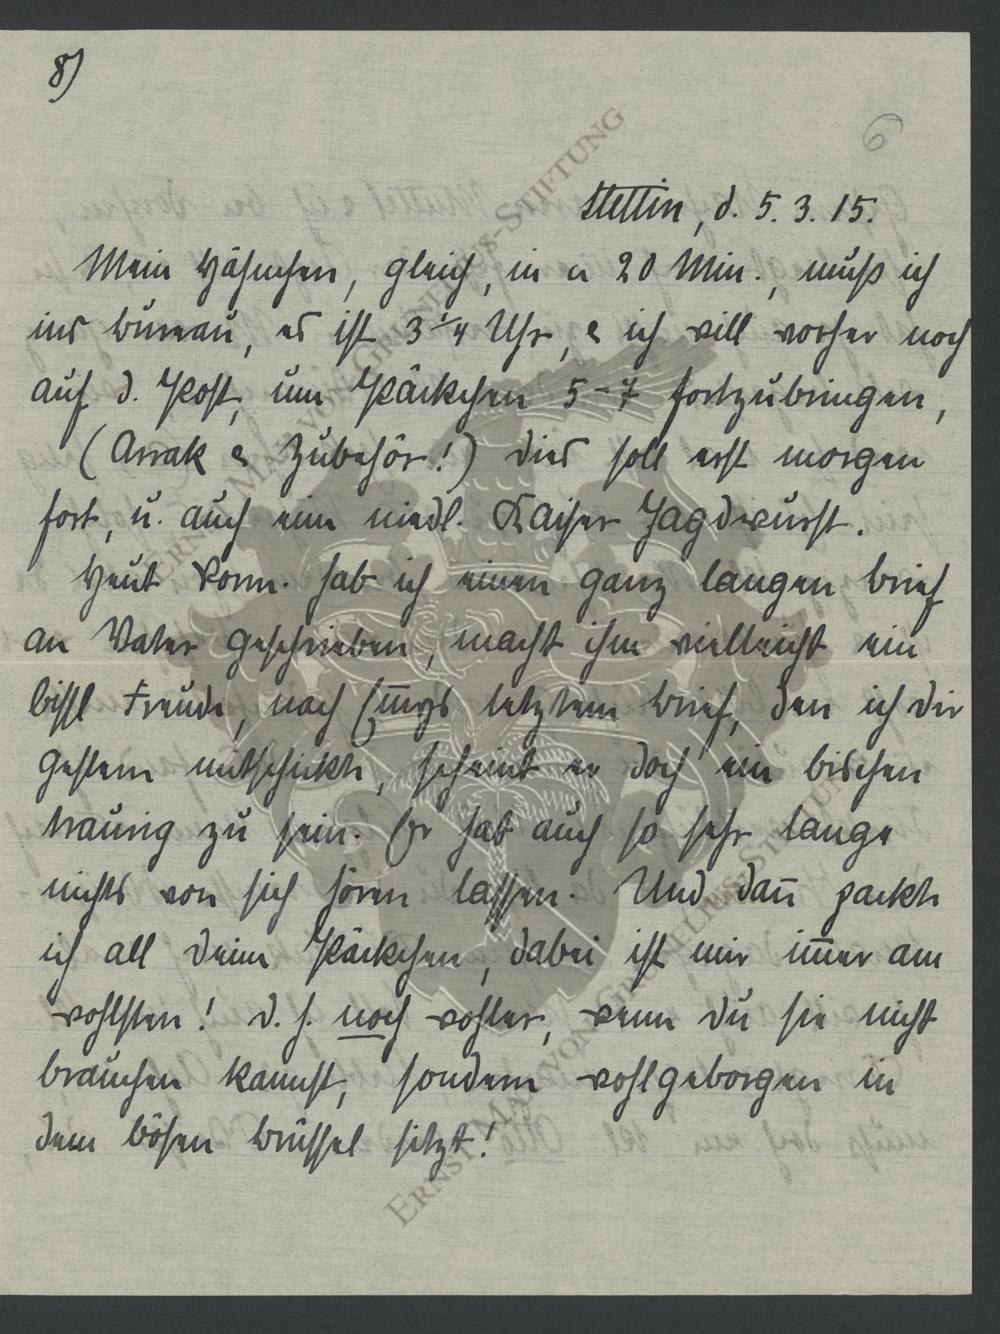 8)
6
Stettin, d. 5. 3. 15.
Mein Häschen, gleich, in a 20 Min., muß ich
ins Bureau, es ist 3 1/4 Uhr, & ich will vorher noch
auf d. Post, um Päckchen 5-7 fortzubringen,
(Arrak & Zubehör!) dies soll erst morgen
fort, u. auch eine niedl. Kaiser Jagdwurst.
Heut Vorm. hab ich einen ganz langen Brief
an Vater geschrieben, macht ihm vielleicht ein
bissl Freude, nach letztem Brief, den ich dir
gestern mitschickte, scheint er doch ein bischen
traurig zu sein. Er hat auch so sehr lange
nichts von sich hören lassen. Und dan̄ packte
ich all deine Päckchen, dabei ist mir im̄er am
wohlsten! d. h. noch wohler, wenn du sie nicht
brauchen kannst, sondern wohlgeborgen in
dem bösen Brüssel sitzt!
ERNST MAX VON GRUNELIUS-STIFTUNG
ERNST MAX VON GRUNELIUS-STIFTUNG